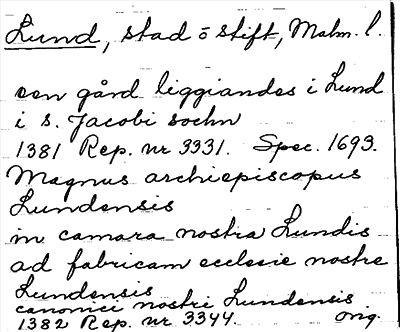 Lund, stad o stift, Malm. l.
een gård liggiandes i Lund
i s. Jacobi sochn
1381 Rep. nr 3331. Spec. 1693.
Magnus archiepiscopus
Lundensis
in camara nostra Lundis
ad fabricam ecclesie nostre
Lundensis
canonici nostri Lundensis
1382 Rep. nr 3344. orig.